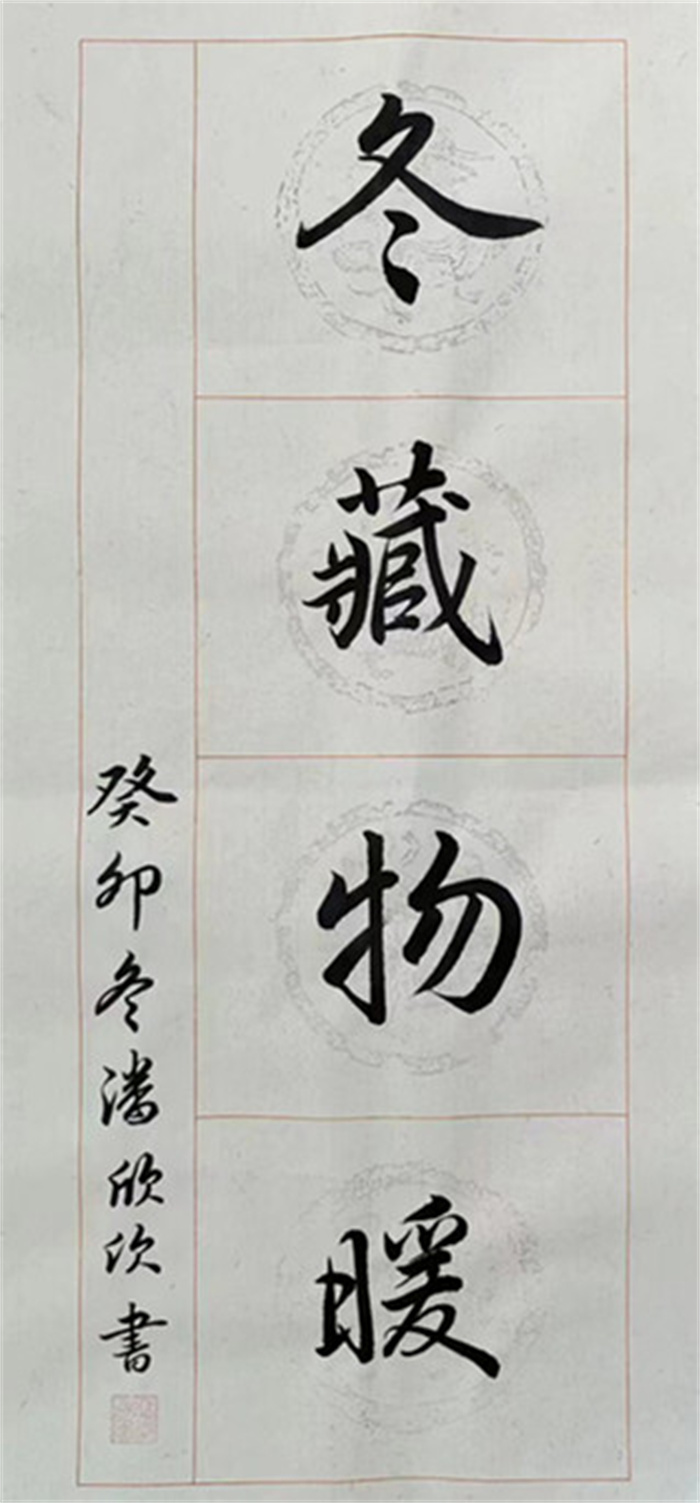 冬藏物暖
癸卯冬潘欣欣書